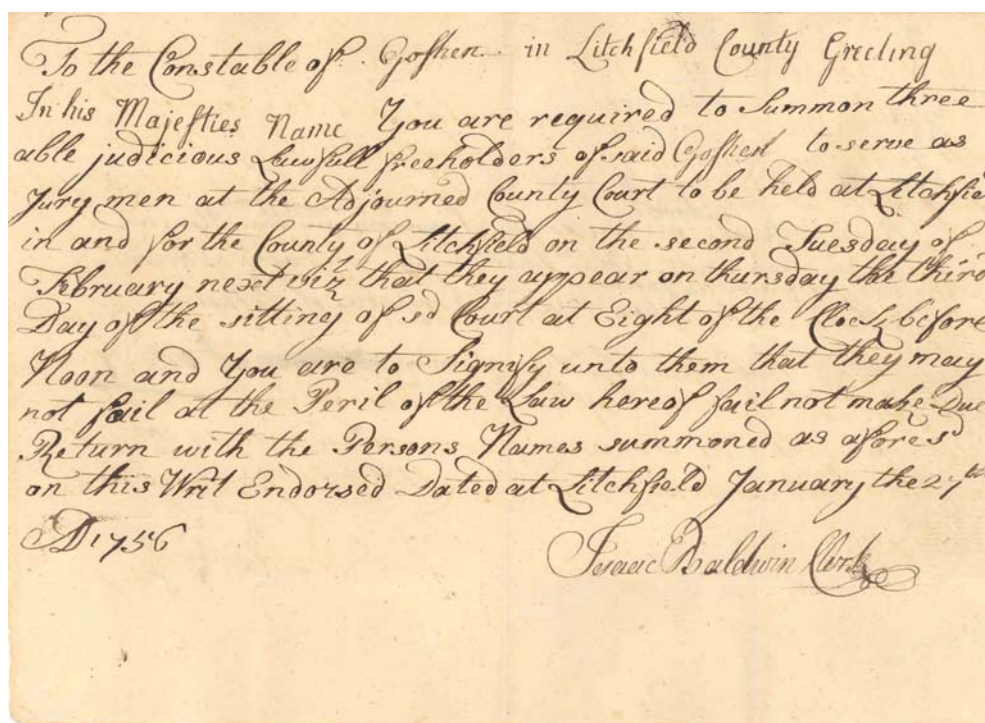 To the Constable of Goshen in Litchfield County Greeting
In his Majesties Name You are required to Summon three
able judicious Lawfull freeholders of said Goshen to serve as
Jury men at the Adjourned County Court to be held at Litchfie
in and for the County of Litchfield on the second Tuesday of
February next viz that they appear on thursday the third
Day of the sitting of sd Court at Eight of the Clock before
Noon and You are to Signify unto them that they may
not fail at the Peril of the Law hereof fail not make Due
Return with the Persons Names summoned as afores'd
on this Writ Endorsed Dated at Litchfield January the 27th
AD 1756
Isaac Baldwin Clerk